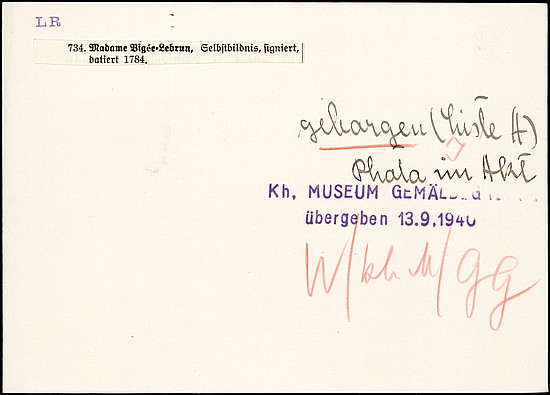 LR
734. Madame Vigée-Lebrun, Selbstbildnis, signiert,
datiert 1784.
geborgen (Liste A)
Photo im Akt
Kh. MUSEUM GEMÄLDEG
übergeben 13.9.1940
W/kh M/GG